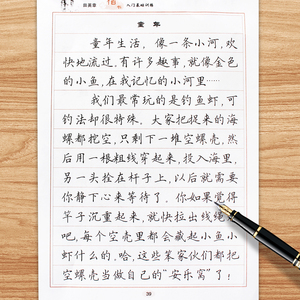 入门基础训练
童年
童年生活,像一条小河,欢
快地流过,有许多趣事,就像金色
的小鱼,在我记忆的小河里……
我们最常玩的是钓鱼虾,可
钓法却很特殊。大家把捉来的海
螺都挖空,只剩下一堆空螺壳,然
后用一根粗线穿起来,投入海里,
另一头拴在杆子上,以后就需要
你静下心来等待了。你如果觉得
竿子沉重起来,就快拉出线绳
吧,每个空壳里都会藏起小鱼小
虾什么的,哈,这些笨家伙们都把
空螺壳当做自己的“安乐窝”了!
39